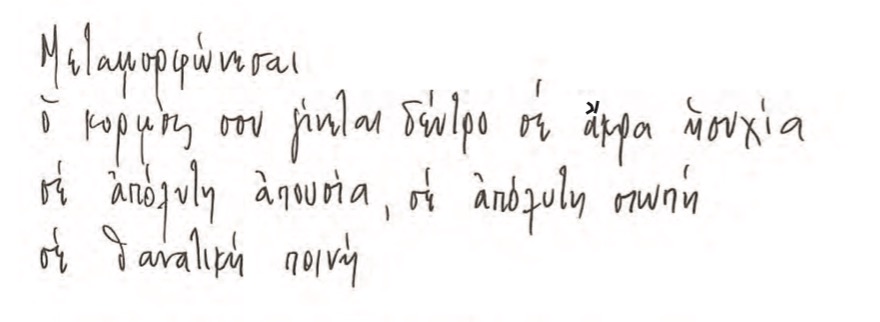 Μεταμορφώνεσαι
ὁ κορμός σου γίνεται δέντρο σέ ἄκρα ἡσυχία
σέ ἀπόλυτη ἀπουσία, σέ ἀπόλυτη σιωπή
σέ θανατική ποινή